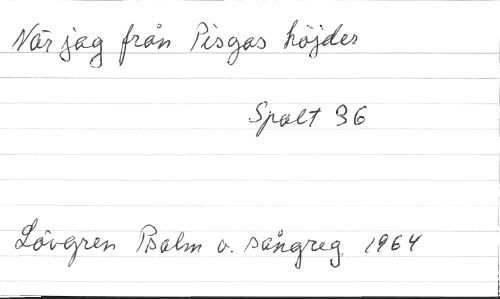 När jag från Pisgas höjder
Spalt 36
Lövgren Psalm o. sångreg. 1964